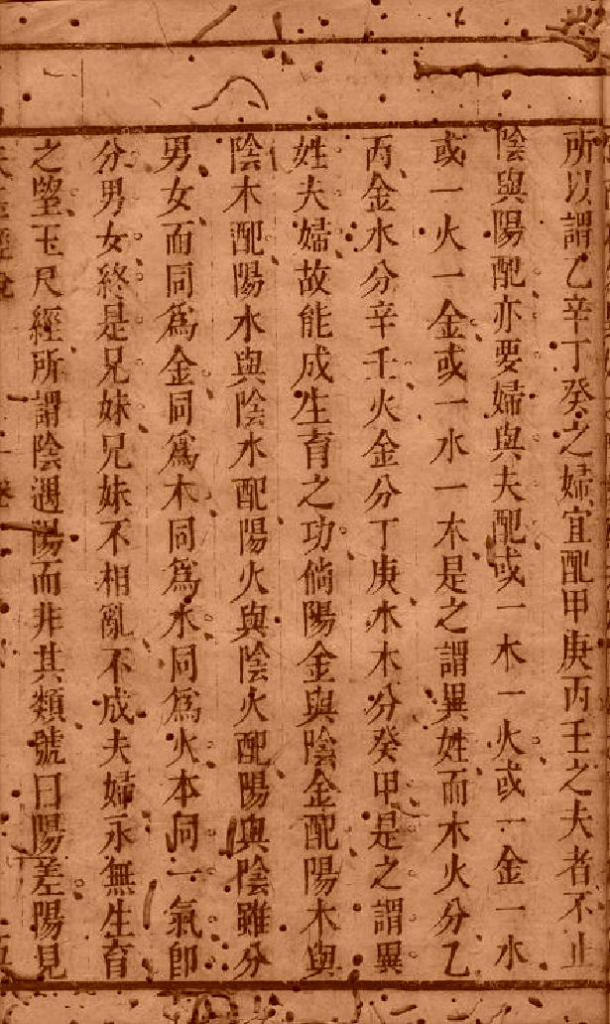 所以謂乙辛丁癸之婦宜配甲庚丙壬之夫者不止
陰與陽配亦要婦與夫配或一木一火或一金一水
或一火一金或一水一木是之謂異姓而木火分乙
丙金水分辛壬火金分丁庚水木分癸甲是之謂異
姓夫婦故能成生育之功倘陽金與陰金配陽木與
陰木配陽水與陰水配陽火與陰火配陽與陰雖分
男女而同爲金同爲木同爲水同爲火本同一氣卽
分男女終是兄妹兄妹不相亂不成夫婦永無生育
之望玉尺經所謂陰遇陽而非其類號曰陽差陽見